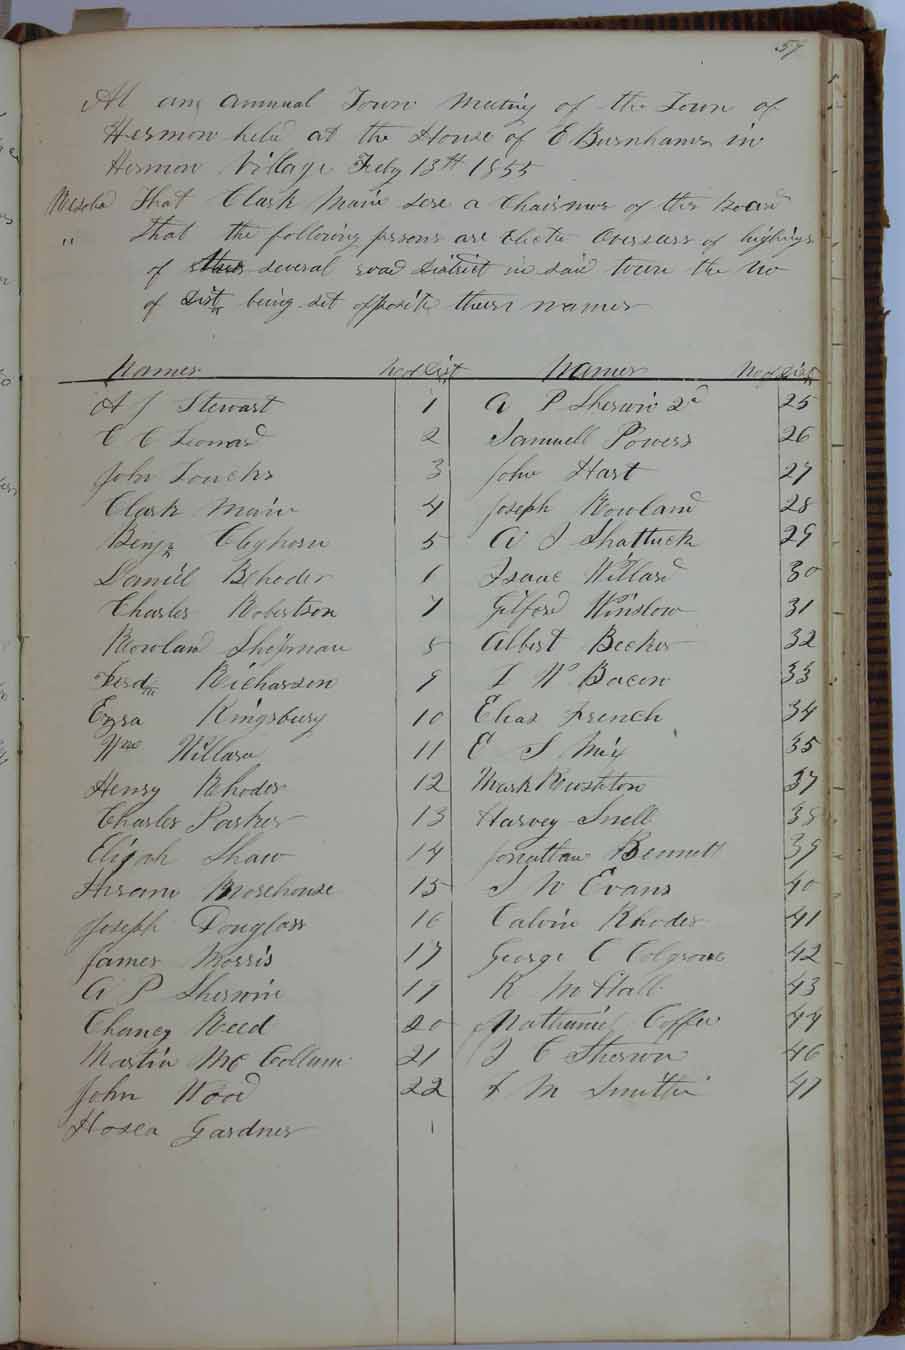 57
At an annual Town Meeting of the Town of
Hermon held at the House of E Burnhams in
Hermon Village Feby 13th 1855
Resolvd That Clark Main be a Chairman of the board
" That the following persons are Electe Overseers of highways
of several road District in said town the No
of Dist being set opposite their names
Names No of Dist Names No of Dist
A J Stewart 1 A P Sherwin 2d 25
C C Leonard 2 Samuell Powers 26
John Loucks 3 John Hart 27
Clark Main 4 Joseph Rowland 28
Benj Cleghorn 5 A J Shattuck 29
Daniel Rhoder 6 Isaac Willard 30
Charles Robertson 7 Gilford Winslow 31
Rowland Shipman 8 Albert Becker 32
Ferd Richarson 9 I W Bacon 33
Ezra Kingsbury 10 Elias French 34
Wm Willard 11 E S Mix 35
Henry Rhodes 12 Mark Rushton 37
Charles Parker 13 Harvey Snell 38
Elijah Shaw 14 Jonathan Bennett 39
Hiram Morehouse 15 J W Evans 40
Joseph Douglass 16 Calvin Rhodes 41
James Morris 17 George C Colgrove 42
A P Sherwin 19 R M Hall 43
Chaney Reed 20 Nathaniel Coffee 44
Martin Mc Collum 21 J C Sherwin 46
John Wood 22 F M Smith 47
Hosea Gardner 1